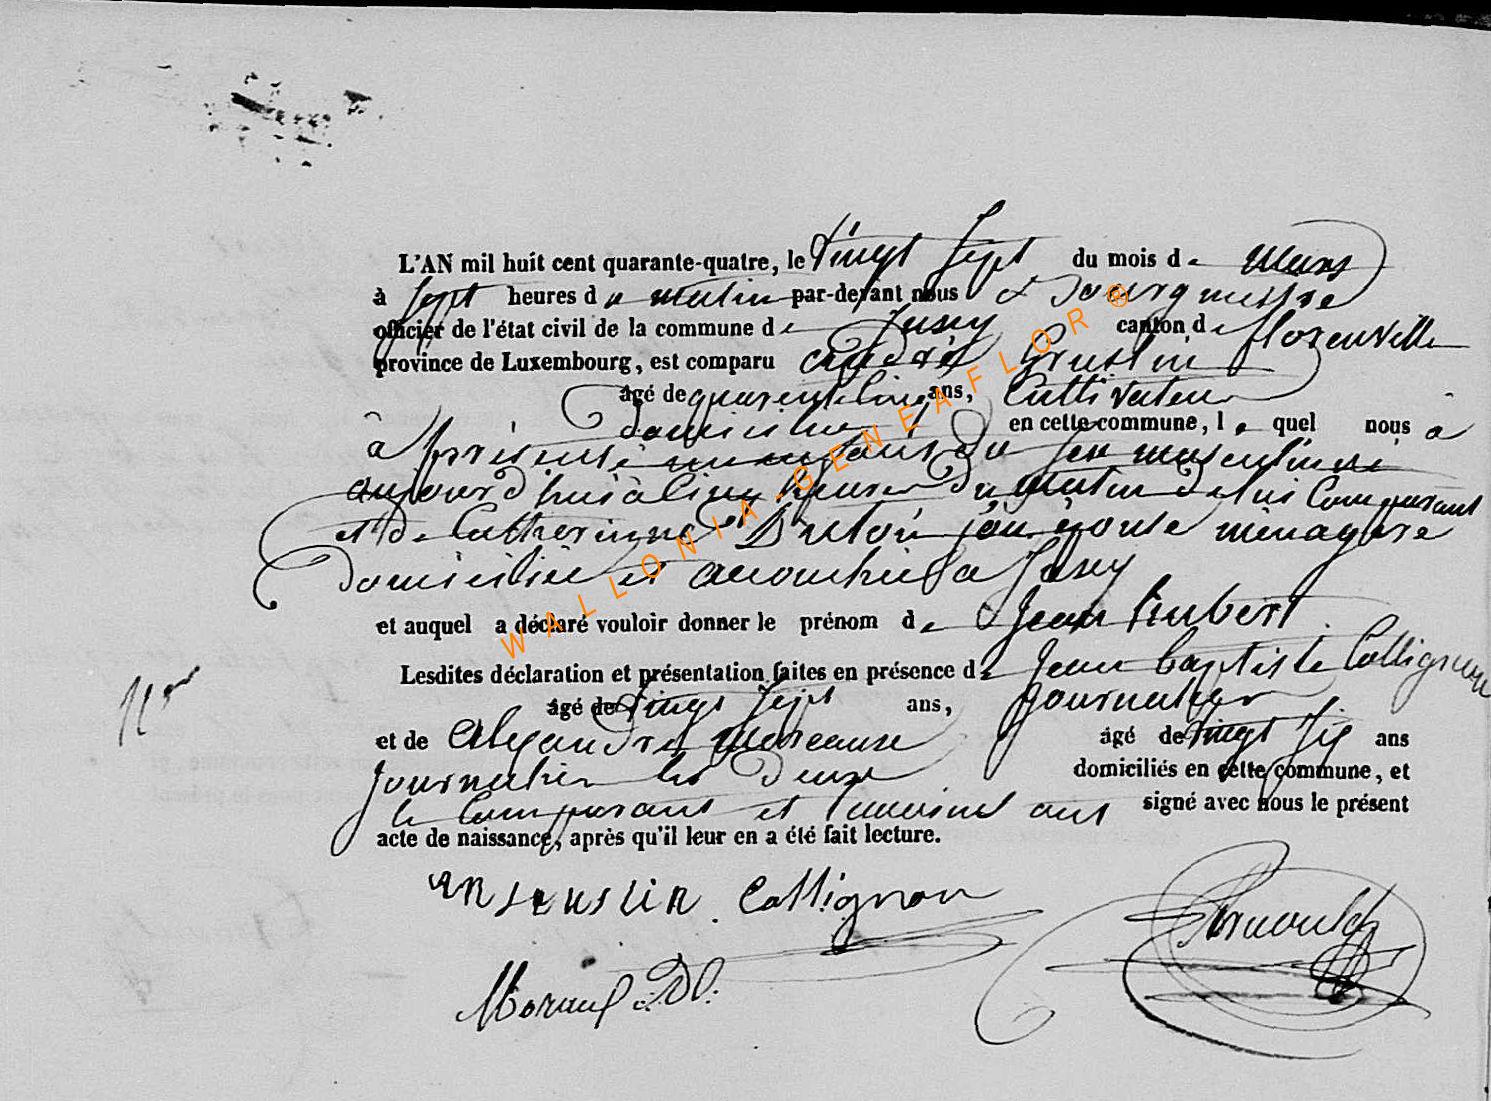 L'AN mil huit cent quarante-quatre, le vingt sept du mois de mars
à sept heures du matin par-devant nous Bourgmestre
officier de l'état civil de la commune de Jusey canton de florenville
province de Luxembourg, est comparu andré Grustin
âgé de quarente cinq ans, Cultivateur
domicilié en cette commune, le quel nous a
à présenté un enfant du sex masculin né
aujourd'hui à cinq heures du matin de lui Comparant
et de Catherinne Buston son épouse ménagère
domiciliée et accouchée a Jusey
et auquel a déclaré vouloir donner le prénom de Jean hubert
Lesdites déclaration et présentation faites en présence de Jean baptiste Collignon
âgé de vingt sept ans, journalier
et de alexandre Moreaux âgé de vingt six ans
journalier les deux domiciliés en cette commune, et
le Comparant et temoins ont signé avec nous le présent
acte de naissance, après qu'il leur en a été fait lecture.
Collignon
WALLONIA-GENEAFLOR®